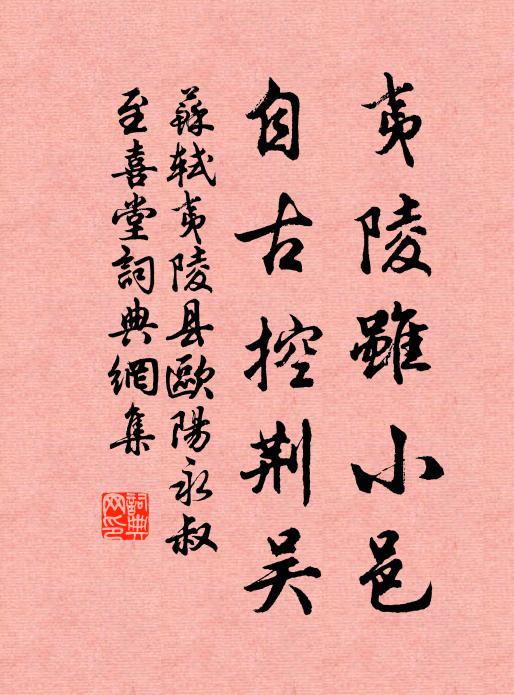 夷陵雖小邑
自古控荆吴
蘇軾夷陵县歐陽永叔
至喜堂詞典網集
詞典网印